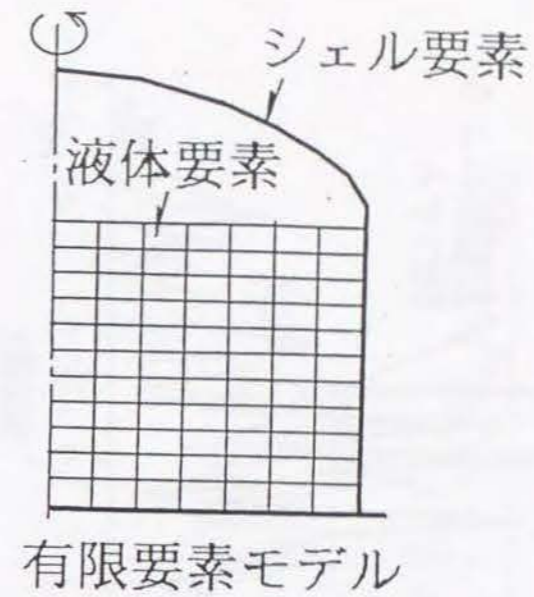 シェル要素
液体要素
有限要素モデル